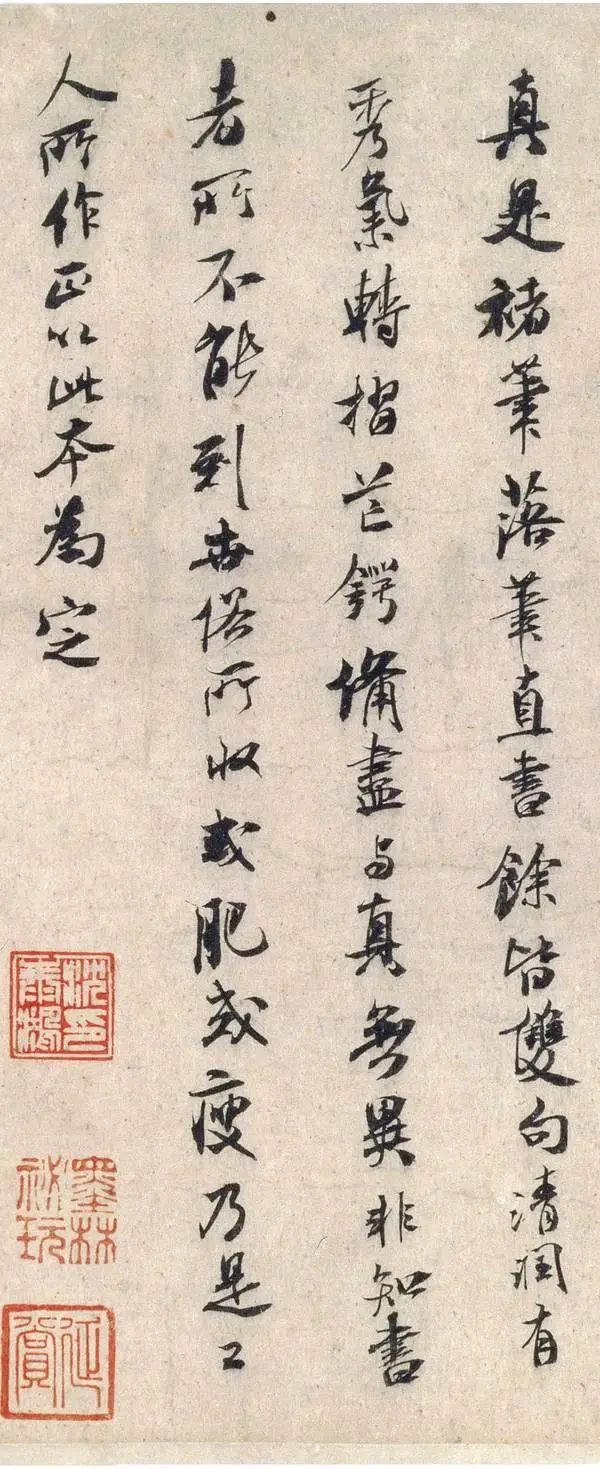 真是褚筆落筆直書餘皆雙勾清潤有
秀氣轉摺芒鍔備盡与真無異非知書
者所不能到世俗所收或肥或瘦乃是工
人所作正以此本為定
墨林
祕玩